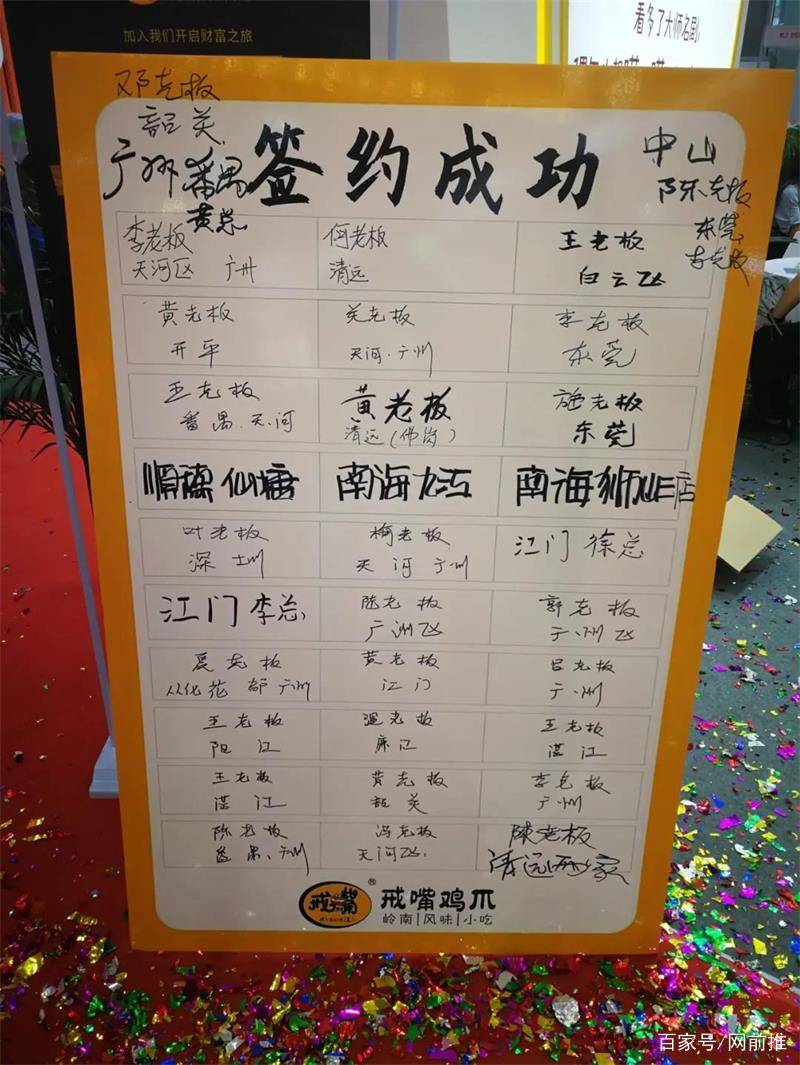 加入我们开启财富之旅
看多了大师名副
邓老板
韶关
广州番禺
黄总
签约成功
中山
陈老板
东莞
李老板
李老板
天河区 广州
何老板
清远
王老板
白云区
黄老板
开平
关老板
天河·广州
李老板
东莞
王老板
番禺·天河
黄老板
清远(佛岗)
施老板
东莞
顺德仙塘
南海九江
南海狮山E店
叶老板
深圳
梅老板
天河 广州
江门 徐总
江门 李总
陈老板
广州区
郭老板
广州区
夏老板
从化花都 广州
黄老板
江门
吕老板
广州
王老板
阳江
温老板
廉江
王老板
湛江
王老板
湛江
黄老板
韶关
李老板
广州
陈老板
广州
冯老板
天河区
陳老板
清远
戒嘴
®
戒嘴鸡爪
岭南|风味|小吃
百家号/网前推